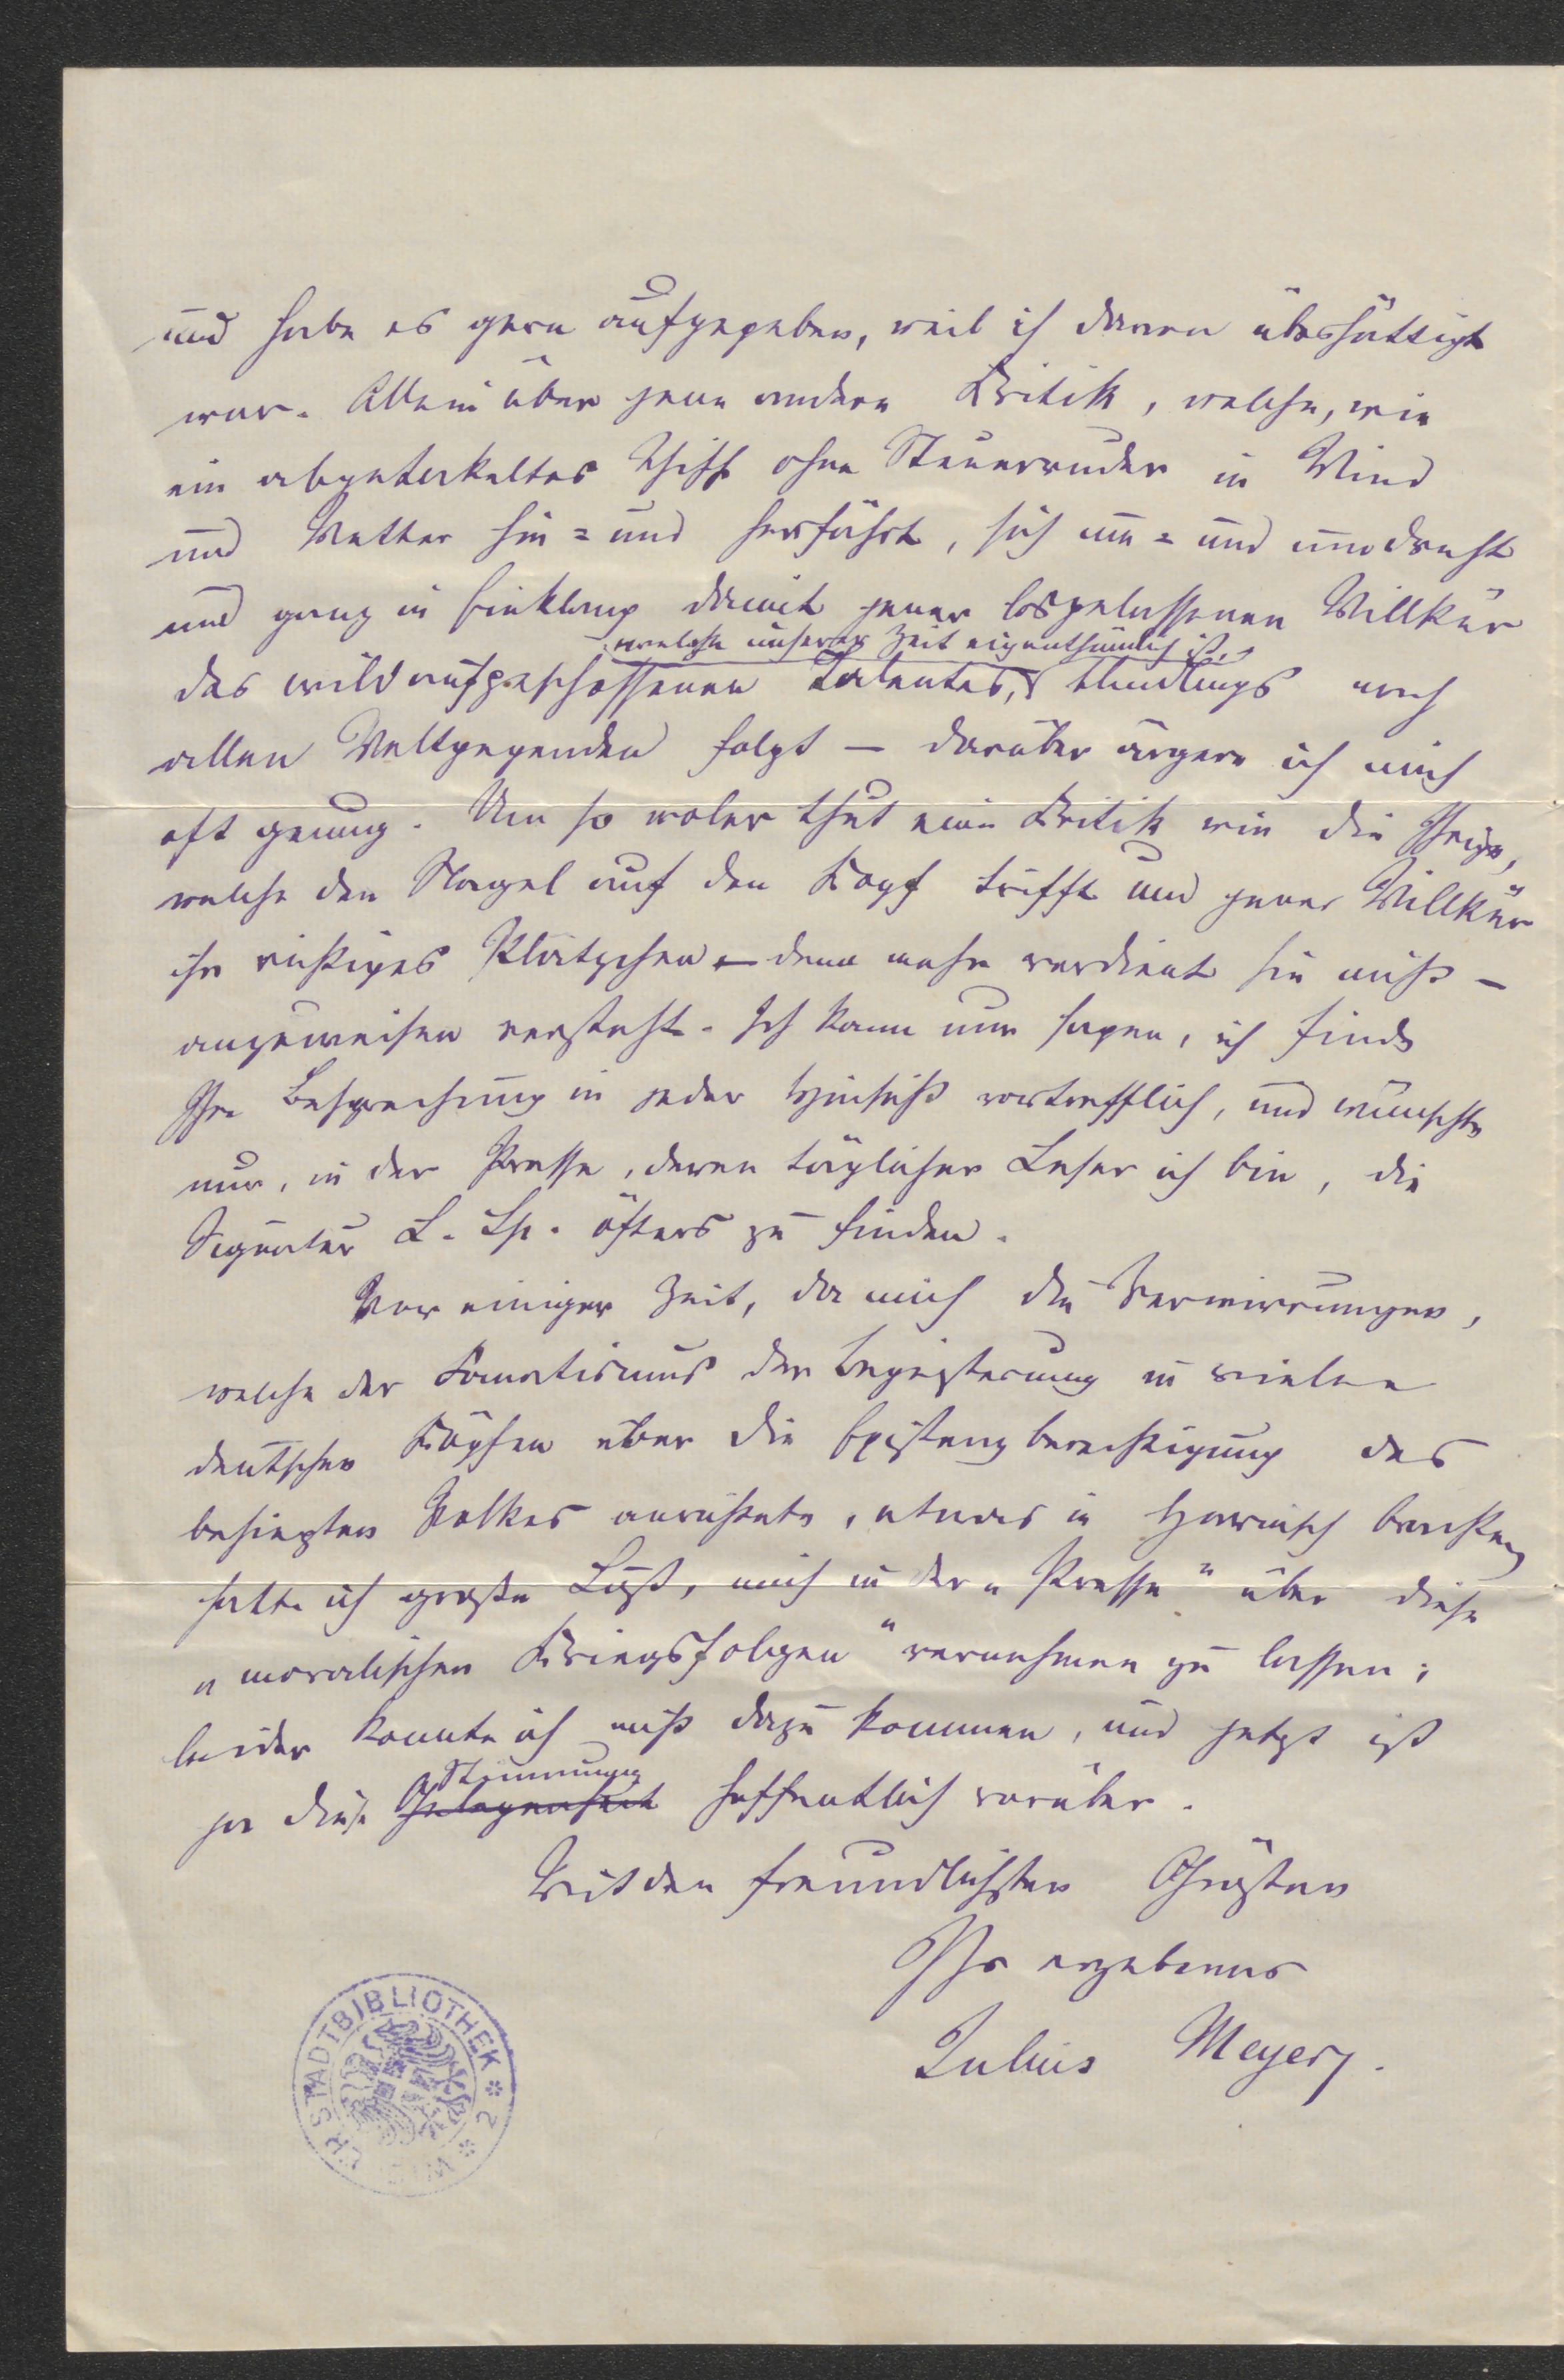 und habe es gern aufgegeben, weil ich davon übersättigt
war. Allein über jene andere Kritik, welche, wie
ein abgetakeltes Schiff ohne Steuerruder in Wind
und Wetter hin= und herfährt, sich um= und umdreht
und ganz in Einklang damit jener losgelassenen Willkür
welche unserer Zeit eigenthümlich ist,
des wildaufgeschossenen Talentes, blindlings nach
allen Weltgegenden folgt – darüber ärgere ich mich
oft genug. Um so woler thut eine Kritik wie die Ihrige,
welche den Nagel auf den Kopf trifft und jener Willkür
ihr richtiges Plätzchen – denn mehr verdient sie nicht –
anzuweisen versteht. Ich kann nur sagen, ich finde
Ihre Besprechung in jeder Hinsicht vortrefflich, und wünschte
nur, in der Presse, deren täglicher Leser ich bin, die
Signatur L. Sp. öfters zu finden.
Vor einiger Zeit, da mich die Verwirrungen,
welche der Fanatismus der Begeisterung in vielen
deutschen Köpfen über die Existenzberechtigung des
besiegten Volkes anrichtete, etwas in Harnisch brachten,
hatte ich große Lust, mich in der „Presse" über diese
„moralischen Kriegsfolgen" vernehmen zu lassen;
leider konnte ich nicht dazu kommen, und jetzt ist
Stimmung
ja diese Gelegenheit hoffentlich vorüber.
Mit den freundlichsten Grüßen
Ihr ergebener
Julius Meyer.
WIENER STADTBIBLIOTHEK * 2 *